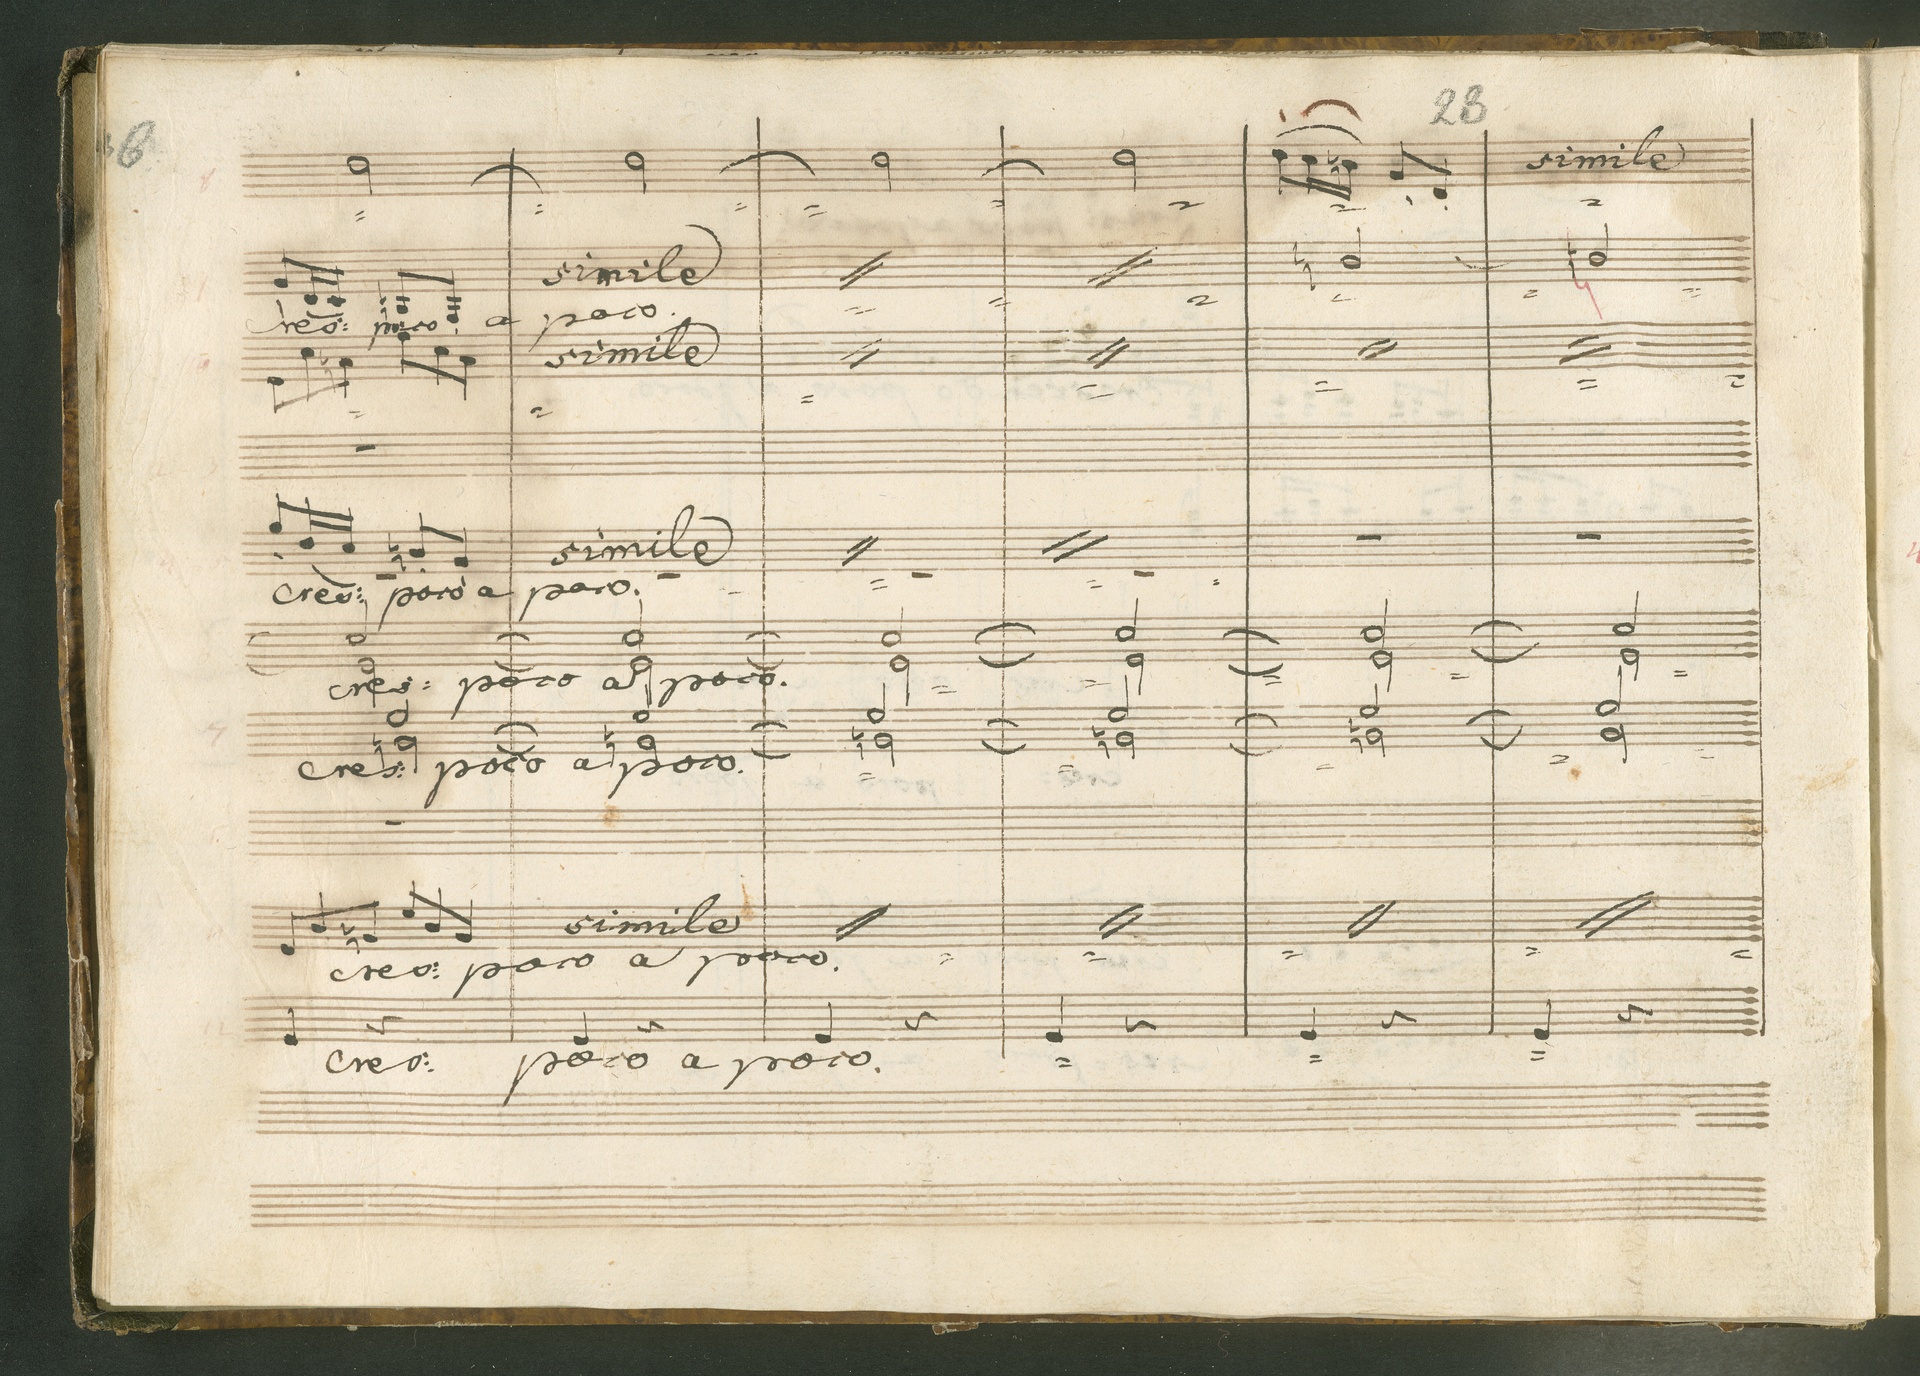 23
6
simile
simile
cres: poco a poco.
simile
simile
cres: poco a poco.
cres: poco a poco.
cres: poco a poco.
simile
cres: poco a poco.
cres: poco a poco.